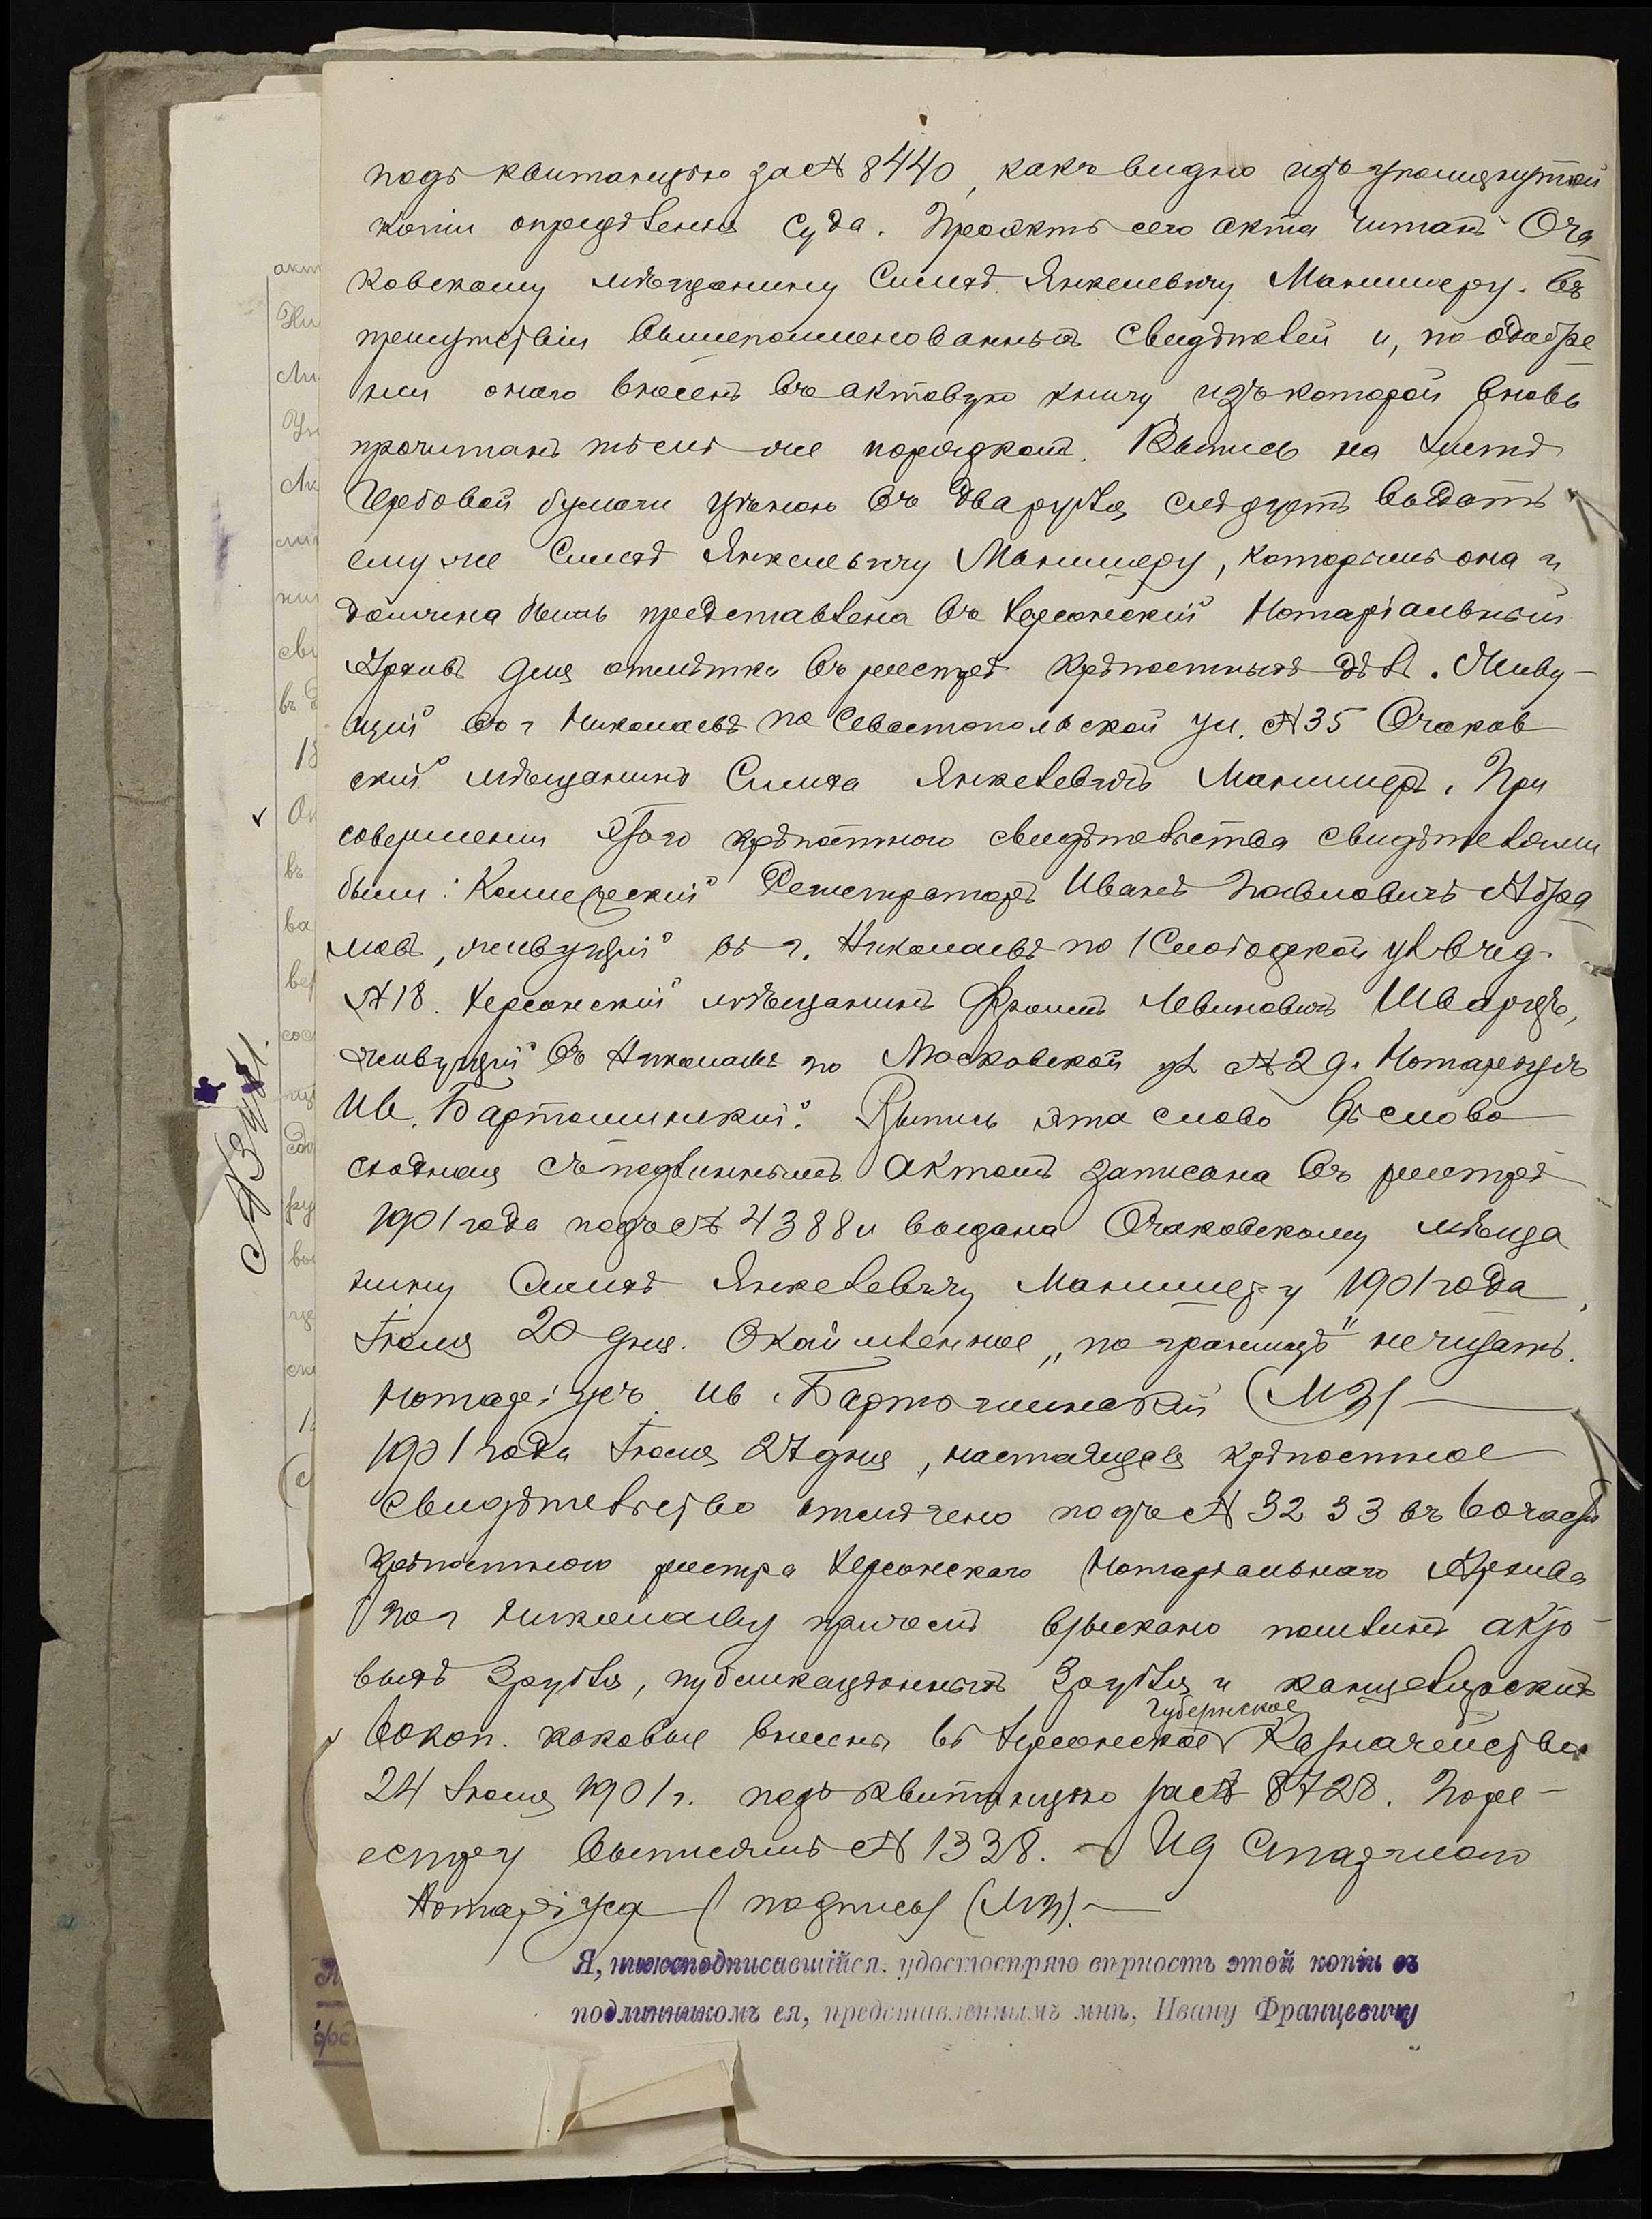 подъ квитанцію за № 8440, какъ видно изъ упомянутой
копіи опредѣленія Суда. Проэктъ сего акта читанъ Оча
ковскому мѣщанину Симхѣ Янкелевичу Маншмеру. въ
присутствіи вышепоименованныхъ свидѣтелей и, по одобре
ніи онаго внесенъ въ актовую книгу изъ которой вновь
прочитанъ тѣмъ же порядкомъ. Выпись на листѣ
гербовой бумаги цѣною въ два рубля, слѣдуетъ выдать
ему же Симхѣ Янкелевичу Маншмеру, которымъ она и
должна быть представлена въ Херсонскій Нотаріальный
Архивъ для отмѣтки въ реестрѣ крѣпостныхъ дѣлъ. Живу-
щій въ г Николаевѣ по Севастопольской ул. № 35 Очаков
скій мѣщанинъ Симха Янкелевичъ Маншмеръ. При
совершеніи этого крѣпостного свидѣтельства свидѣтелями
были: Коллежскій Регистраторъ Иванъ Павловичъ Абра
мовъ, живущій въ г. Николаевѣ по 1 Слободской ул. въ д.
№ 18. Херсонскій мѣщанинъ Фроимъ Левиновичъ Шварцъ,
живущій въ Николаевѣ по Московской ул № 29. Нотаріусъ
Ив. Бартошинскій. Выпись эта слово въ слово
сходная съ подлиннымъ актомъ записана въ реестрѣ
1901 года подъ № 4388 и выдана Очаковскому мѣща
нину Симхѣ Янкелевичу Маншмеру 1901 года
Іюля 20 дня. Окаймленное „по границѣ" не читать.
Нотаріусъ Ив. Бартошинскій (МП)
1901 года Іюля 27 дня, настоящее крѣпостное
свидѣтельство отмѣчено подъ № 3233 въ 60 части
крѣпостного реестра Херсонскаго Нотаріальнаго Архива
по г Николаеву причемъ взыскано пошлинъ акто-
выхъ 3 рубля, публикаціонныхъ 3 рубля и канцелярскихъ
60 коп. каковые внесены въ Херсонское Губернское Казначейство
24 Іюля 1901 г. подъ квитанцію за № 8728. По ре-
естру выписямъ № 1338. И д Старшаго
Нотаріуса (подпись) (МП).
№ 35
Я, нижеподписавшійся. удостовѣряю вѣрность этой копіи съ
подлинникомъ ея, представленнымъ мнѣ, Ивану Францевичу